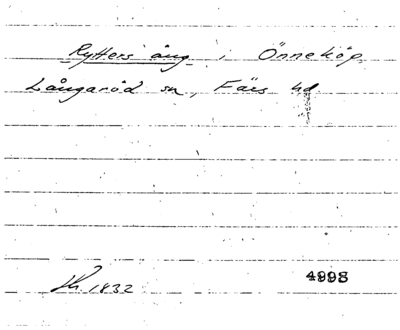 Rytters äng i Önneköp
Långaröd sn, Färs hd
1832
4993